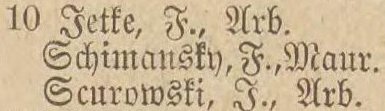 10 Jetke, F., Arb.
Schimansky, F., Maur.
Scurowski, J., Arb.